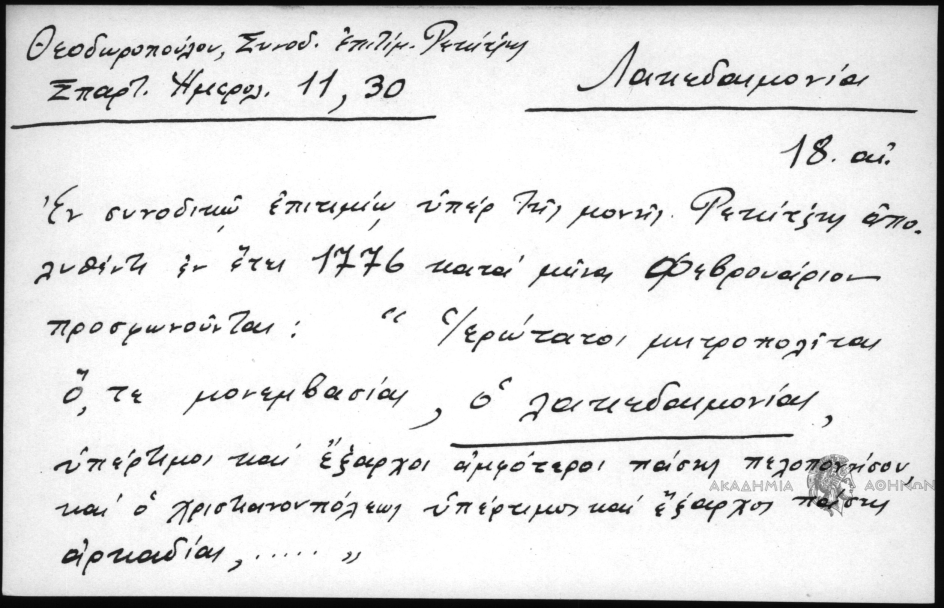 Θεοδωροπούλου, Συνοδ. ἐπιτίμ. Ρεκίτζης
Σπαρτ. Ἡμερολ. 11, 30
Λακεδαιμονία
18. αἰ.
Ἐν συνοδικῷ ἐπιτιμίῳ ὑπέρ τῆς μονῆς Ρεκίτζης ἀπο-
λυθέντι ἐν ἔτει 1776 κατά μῆνα Φεβρουάριον
προσφωνοῦνται: “ Ἱερώτατοι μητροπολῖται
ὅ, τε μονεμβασίας, ὁ λακεδαιμονίας,
ὑπέρτιμοι καί ἔξαρχοι ἀμφότεροι πάσης πελοποννήσου,
καί ὁ χριστιανουπόλεως ὑπέρτιμος καί ἔξαρχος πάσης
ἀρκαδίας, ..... „
ΑΚΑΔΗΜΙΑ ΑΘΗΝΩΝ